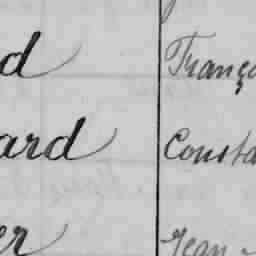 d Franço
ard Consta
er Jean